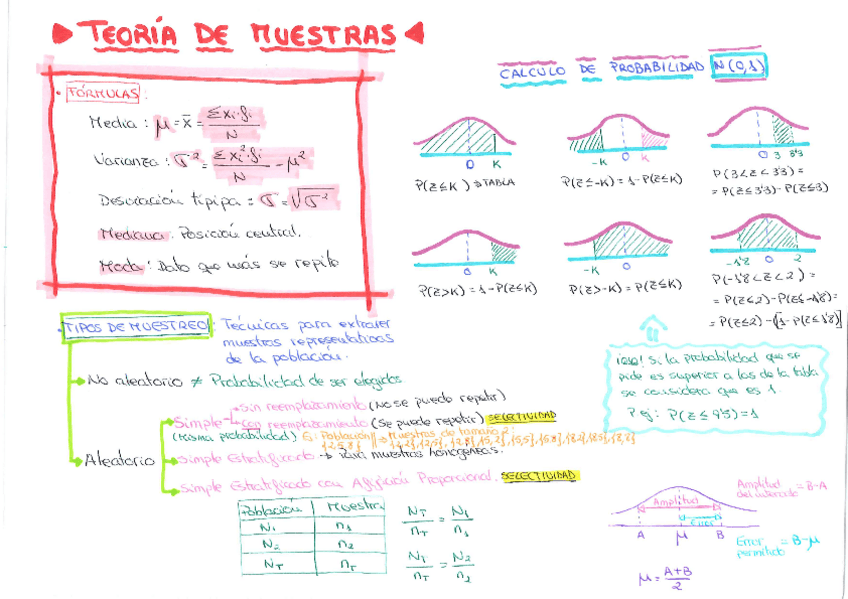 TEORÍA DE MUESTRAS
FÓRMULAS:
Media: μ = x̄ = Σxi·fi / N
Varianza: σ² = Σxi²·fi / N - μ²
Desviación típipa = σ = √σ²
Mediana: Posición central.
Moda: Dato que más se repite
CALCULO DE PROBABILIDAD N(0,1)
0 K
P(Z≤K) ⇒ TABLA
-K 0 K
P(Z≤-K) = 1-P(Z≤K)
0 3 3'3
P(3<Z<3'3) =
= P(Z≤3'3) - P(Z≤3)
0 K
P(Z>K) = 1-P(Z≤K)
-K 0
P(Z>-K) = P(Z≤K)
-1'8 0 2
P(-1'8<Z<2) =
= P(Z≤2) - P(Z≤-1'8) =
= P(Z≤2) - [1-P(Z≤1'8)]
Si la probabilidad que se
pide es superior a las de la tabla
se considera que es 1.
P ej: P(Z≤9'5) = 1
TIPOS DE MUESTREO: Técnicas para extraer
muestras representativas
de la población.
No aleatorio ≠ Probabilidad de ser elegidos
Aleatorio
Simple
(Misma probabilidad)
Sin reemplazamiento (No se puede repetir)
con reemplazamiento (Se puede repetir) SELECTIVIDAD
Población Muestras de tamaño 2:
Simple Estratificado → Para muestras homogeneas.
Simple Estratificado con Afijación Proporcional. SELECTIVIDAD
Población Muestra
N1 n1
N2 n2
NT nT
NT/nT = N1/n1
NT/nT = N2/n2
Amplitud
Error
A μ B
μ = A+B / 2
Amplitud del intervalo = B-A
Error permitido = B-μ